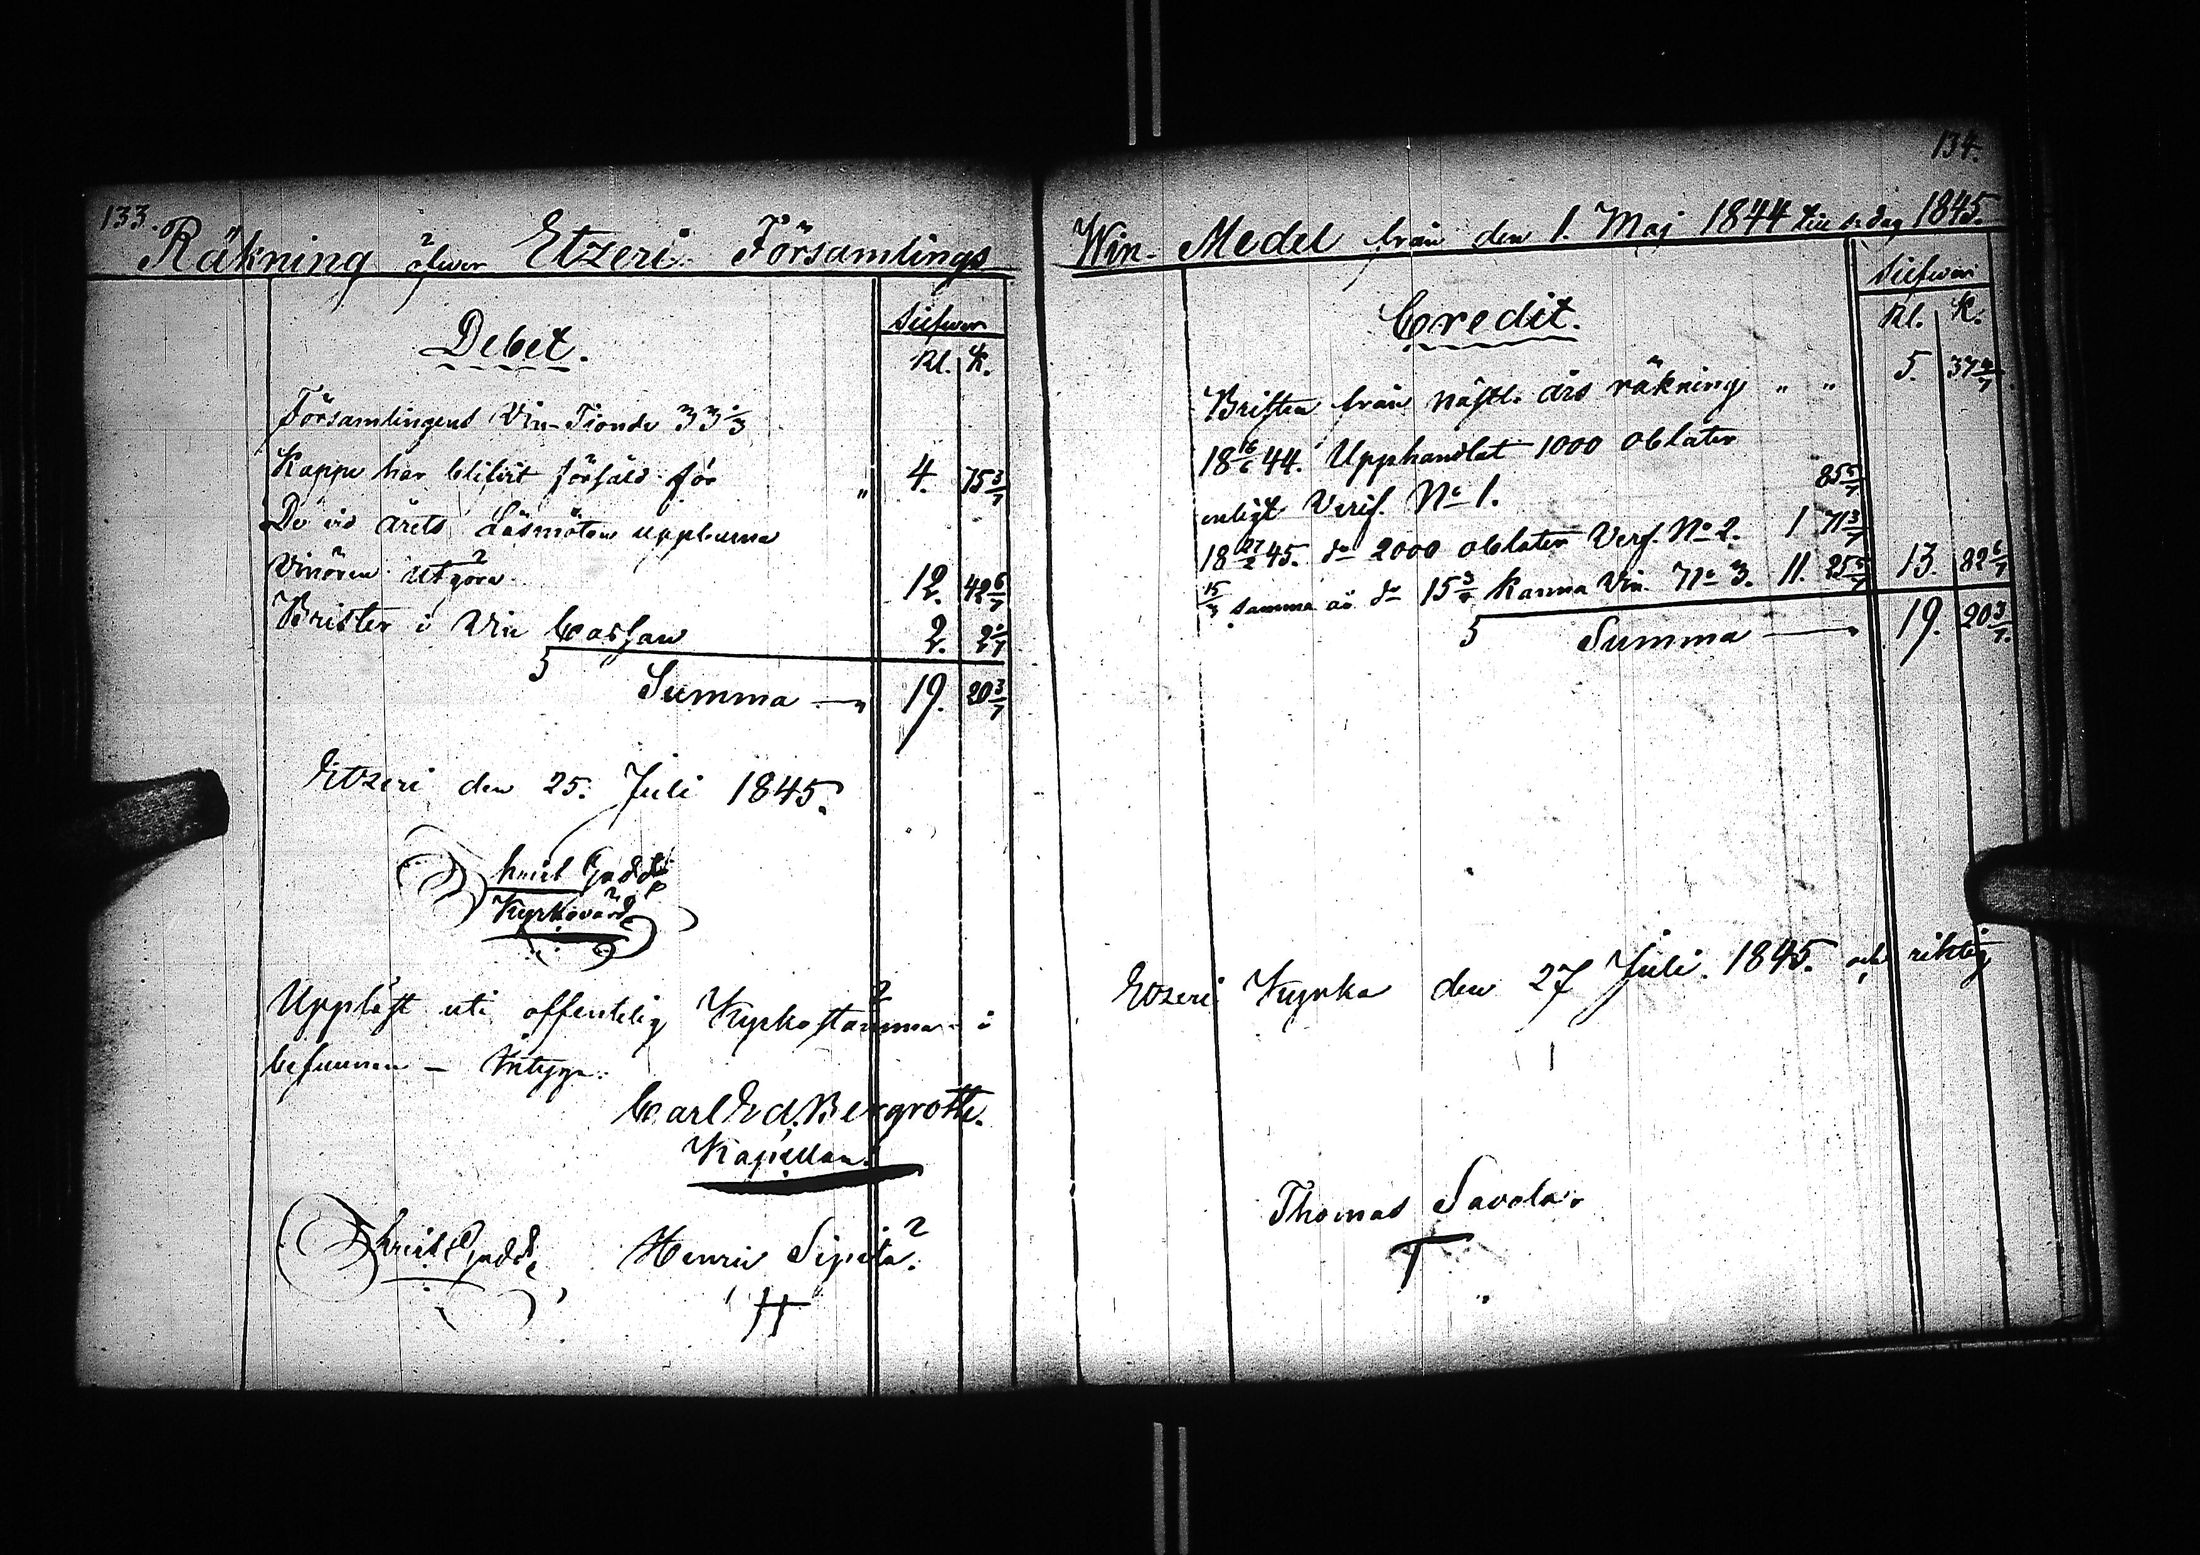 133.
Räkning öfwer Etzeri Församlings
Debet.
Silfwer
Rl. K.
Församlingens Vin-Tionde 33 1/3
Kappe har blifvit försåld för " 4. 75 3/7
De vid årets Läsmöten uppburna
Vinören utgöra 12. 42 6/7
Brister i Vin Cassan 2. 2 1/7
Summa 19. 20 3/7
Etzeri den 25. Juli 1845.
Gadd
Kyrkovärd
Uppläst uti offentelig Kyrkostämma i
befunnen — Intyga:
Carl Ed. Bergroth.
Kapellan.
Gadd Henric Sipilä
134.
Win-Medel från den 1. Maj 1844 till s. dag 1845.
Credit.
Silfwer
Rl. K.
Bristen från näst. års räkning " " 5. 37 4/7
18 16/6 44. Upphandlat 1000 oblater
enligt Verif. No 1. 85 5/7
18 27/2 45. do 2000 oblater Verf. No 2. 1 71 3/7
15/3 samma år do 15 3/4 Kanna Vin. No 3. 11. 25 5/7 13. 82 6/7
Summa 19. 20 3/7
Etzeri Kyrka den 27 Juli. 1845. och riktig
Thomas Savola
T